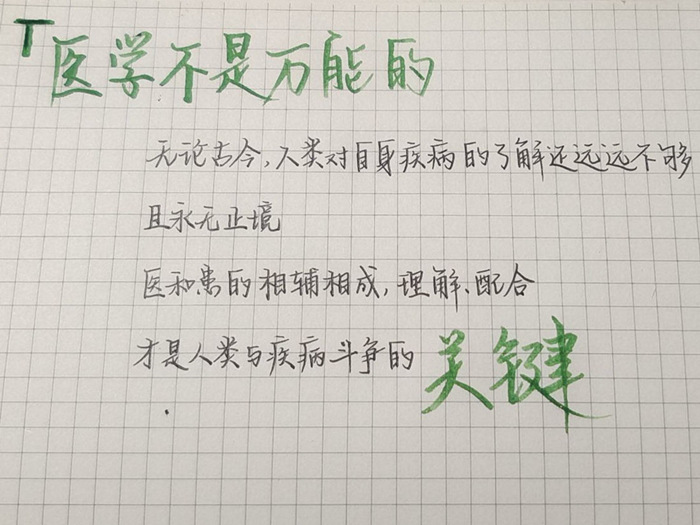 「医学不是万能的
无论古今,人类对自身疾病的了解还远远不够
且永无止境
医和患的相辅相成,理解、配合
才是人类与疾病斗争的关键